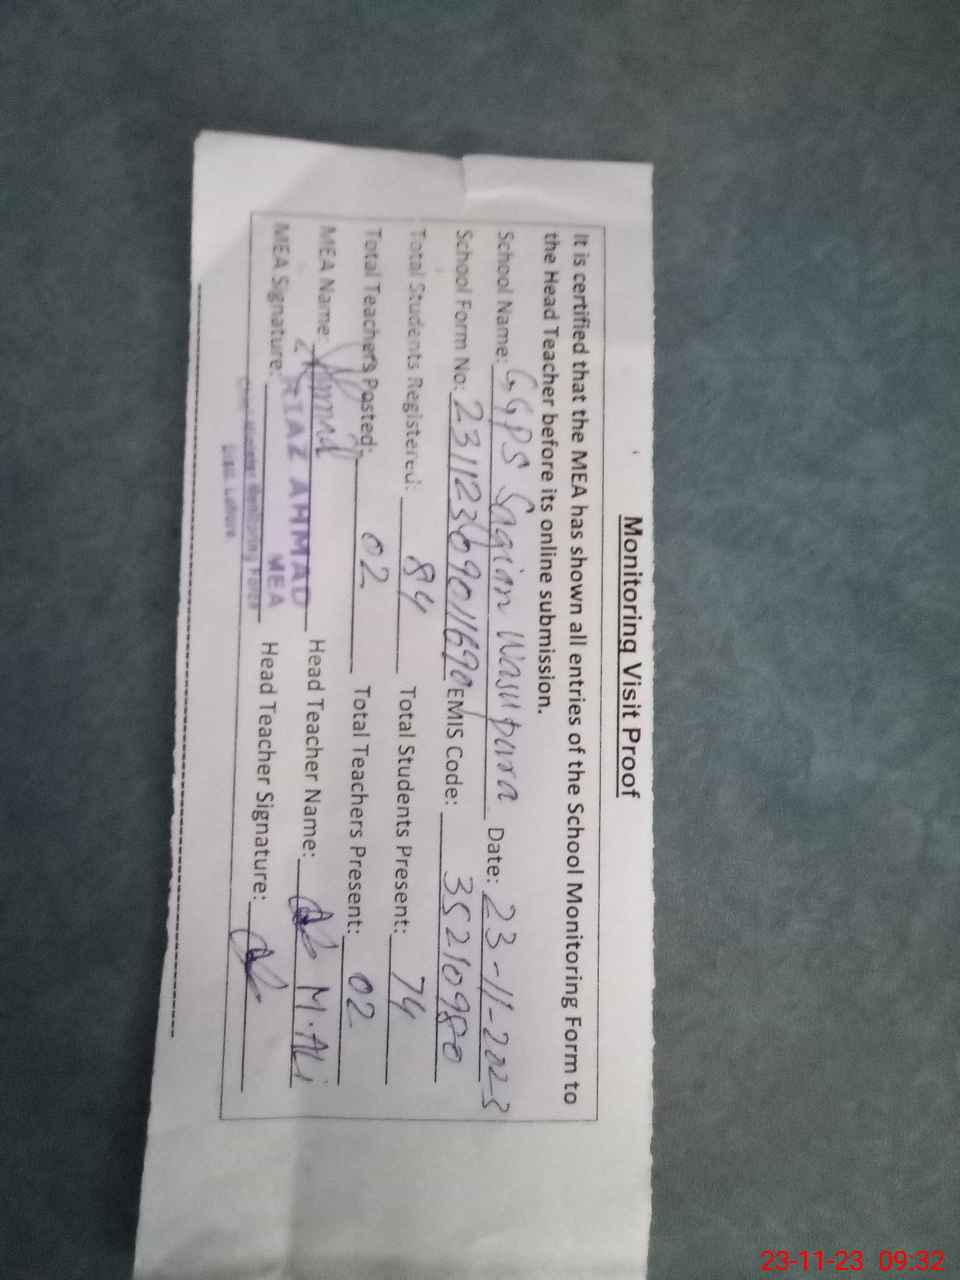 Monitoring Visit Proof
It is certified that the MEA has shown all entries of the School Monitoring Form to
the Head Teacher before its online submission.
School Name: GGPS Sagian Wasupura Date: 23-11-2023
School Form No: EMIS Code: 35210980
Total Students Registered: 84 Total Students Present: 74
Total Teachers Posted: 02 Total Teachers Present: 02
MEA Name: Head Teacher Name: M. ALi
MEA Signature: Head Teacher Signature:
AHMAD
MEA
Monitoring
Lahore
23-11-23 09:32